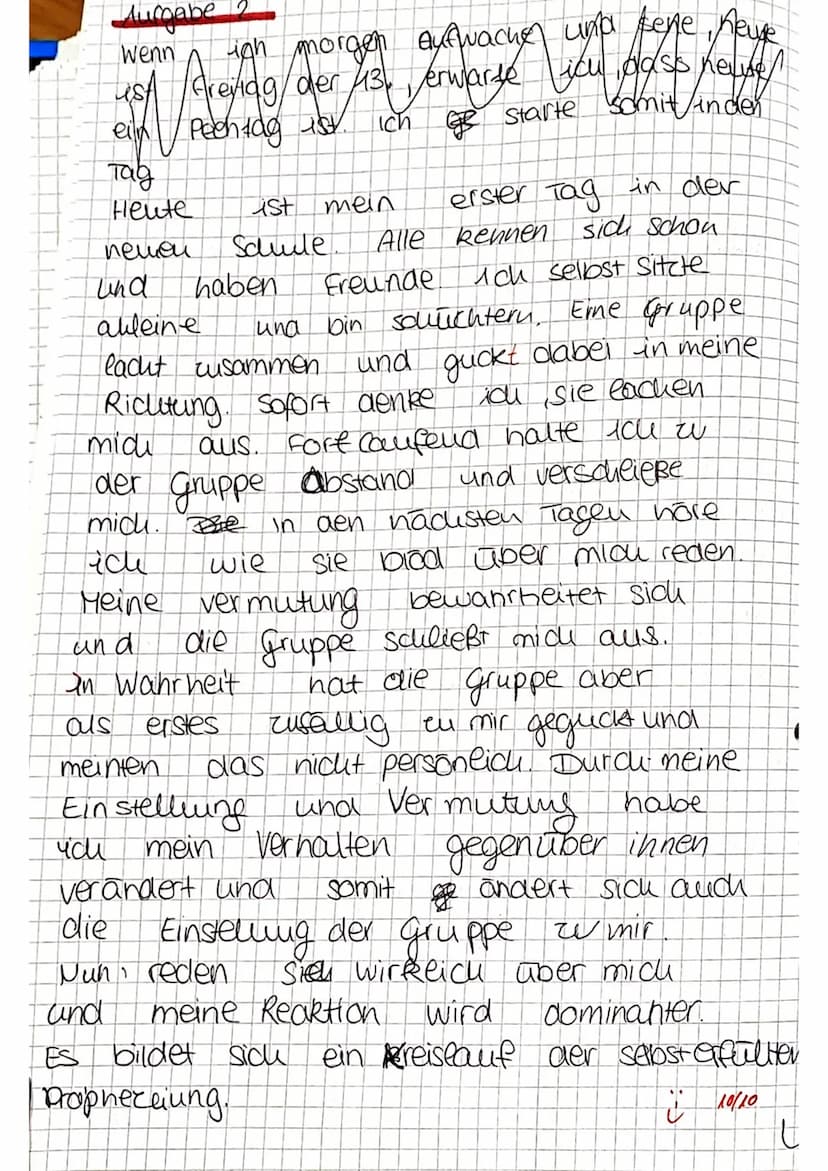 Aufgabe 2
Wenn ich morgen aufwache und sehe, heute
ist Freitag der 13., erwarte ich, dass heute
ein Pechtag ist. ich starte somit in den
Tag
Heute ist mein erster Tag in der
neuen Schule. Alle kennen sich schon
und haben Freunde. ich selbst sitzte
alleine und bin schüchtern. Eine Gruppe
lacht zusammen und guckt dabei in meine
Richtung. Sofort denke ich, sie lachen
mich aus. Fortlaufend halte ich zu
der Gruppe Abstand und verschließe
mich. in den nächsten Tagen höre
ich wie sie blöd über mich reden.
Meine Vermutung bewahrheitet sich
und die Gruppe schließt mich aus.
In Wahrheit hat die Gruppe aber
als erstes zufällig zu mir geguckt und
meinten das nicht persönlich. Durch meine
Einstellung und Vermutung habe
ich mein Verhalten gegenüber ihnen
verändert und somit ändert sich auch
die Einstellung der Gruppe zu mir.
Nun reden sie wirklich über mich
und meine Reaktion wird dominanter.
Es bildet sich ein Kreislauf der selbsterfüllten
Prophezeiung.
10/10